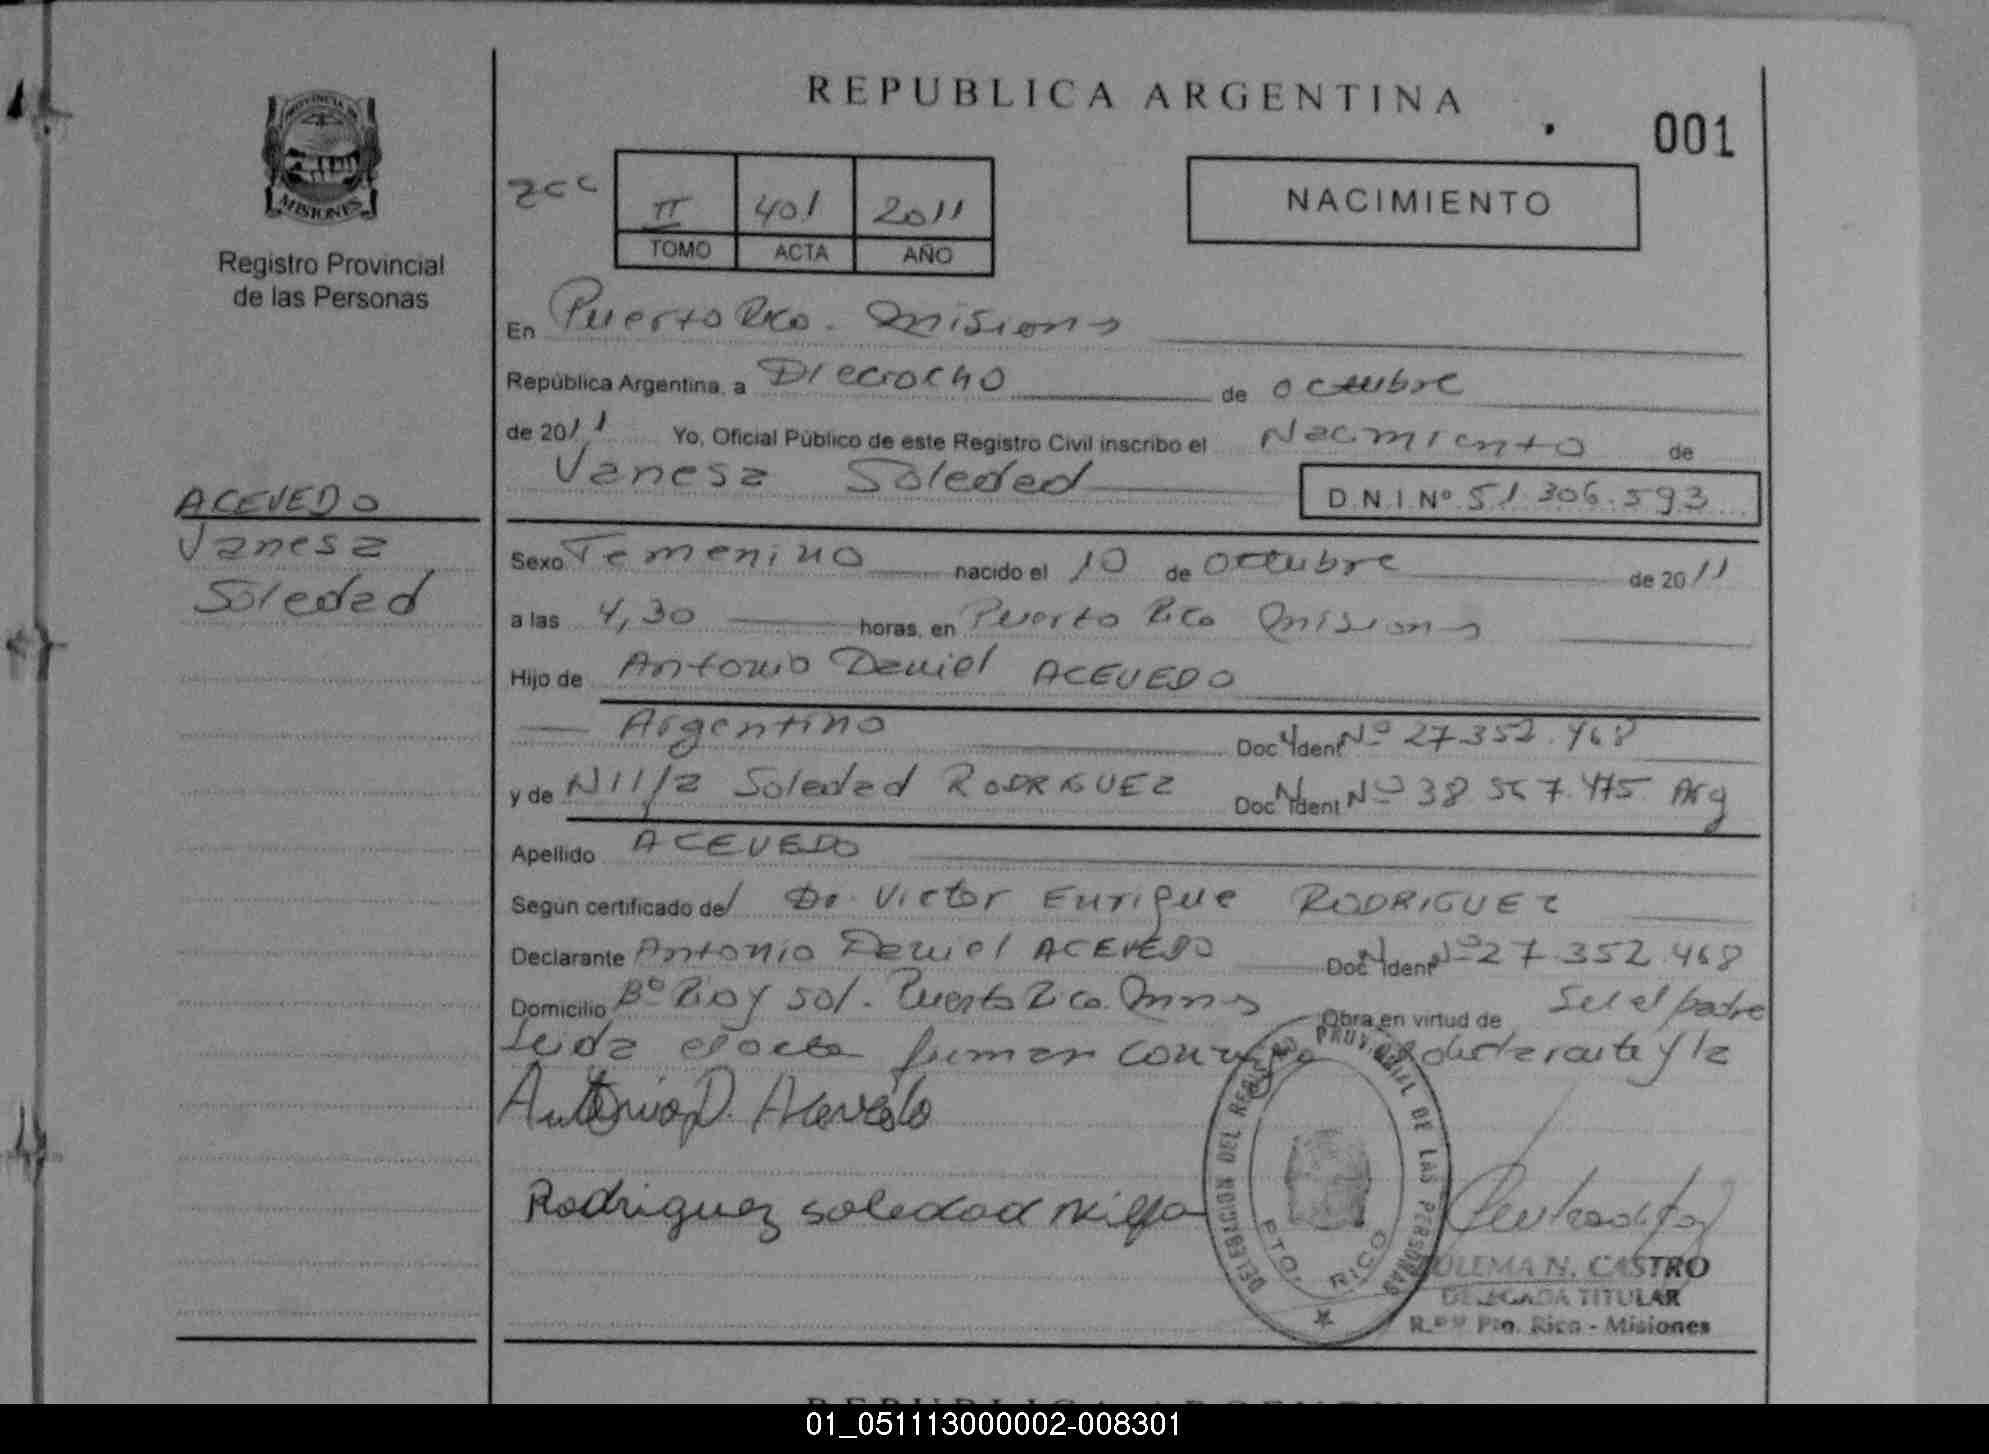 REPUBLICA ARGENTINA
001
PROVINCIA DE
MISIONES
Registro Provincial
de las Personas
II 401 2011
TOMO ACTA AÑO
NACIMIENTO
En Puerto Rico. Misiones
República Argentina, a Dieciocho de octubre
de 2011 Yo, Oficial Público de este Registro Civil inscribo el Nacimiento de
Vanesa Soledad D.N.I Nº 51.306.593
ACEVEDO
Vanesa
Soledad
Sexo Femenino nacido el 10 de octubre de 2011
a las 4,30 horas, en Puerto Rico Misiones
Hijo de Antonio Daniel ACEVEDO
Argentino Doc. Ident Nº 27.352.468
y de Nilfa Soledad RODRIGUEZ Doc. Ident Nº 38.567.475 Arg
Apellido ACEVEDO
Según certificado del Dr. Victor Enrique RODRIGUEZ
Declarante Antonio Daniel ACEVEDO Doc. Ident Nº 27.352.468
Domicilio Bº Rio y Sol. Puerto Rico. Mnes Obra en virtud de Ser el padre
Leida el acta firman conmigo el declarante y la
Antonio D. Acevedo
Rodriguez soledad nilfa
DELEGACION DEL REGISTRO PROVINCIAL DE LAS PERSONAS
PTO. RICO
ULEMA N. CASTRO
DELEGADA TITULAR
R.PP Pto. Rico - Misiones
REPUBLICA ARGENTINA
01_051113000002-008301